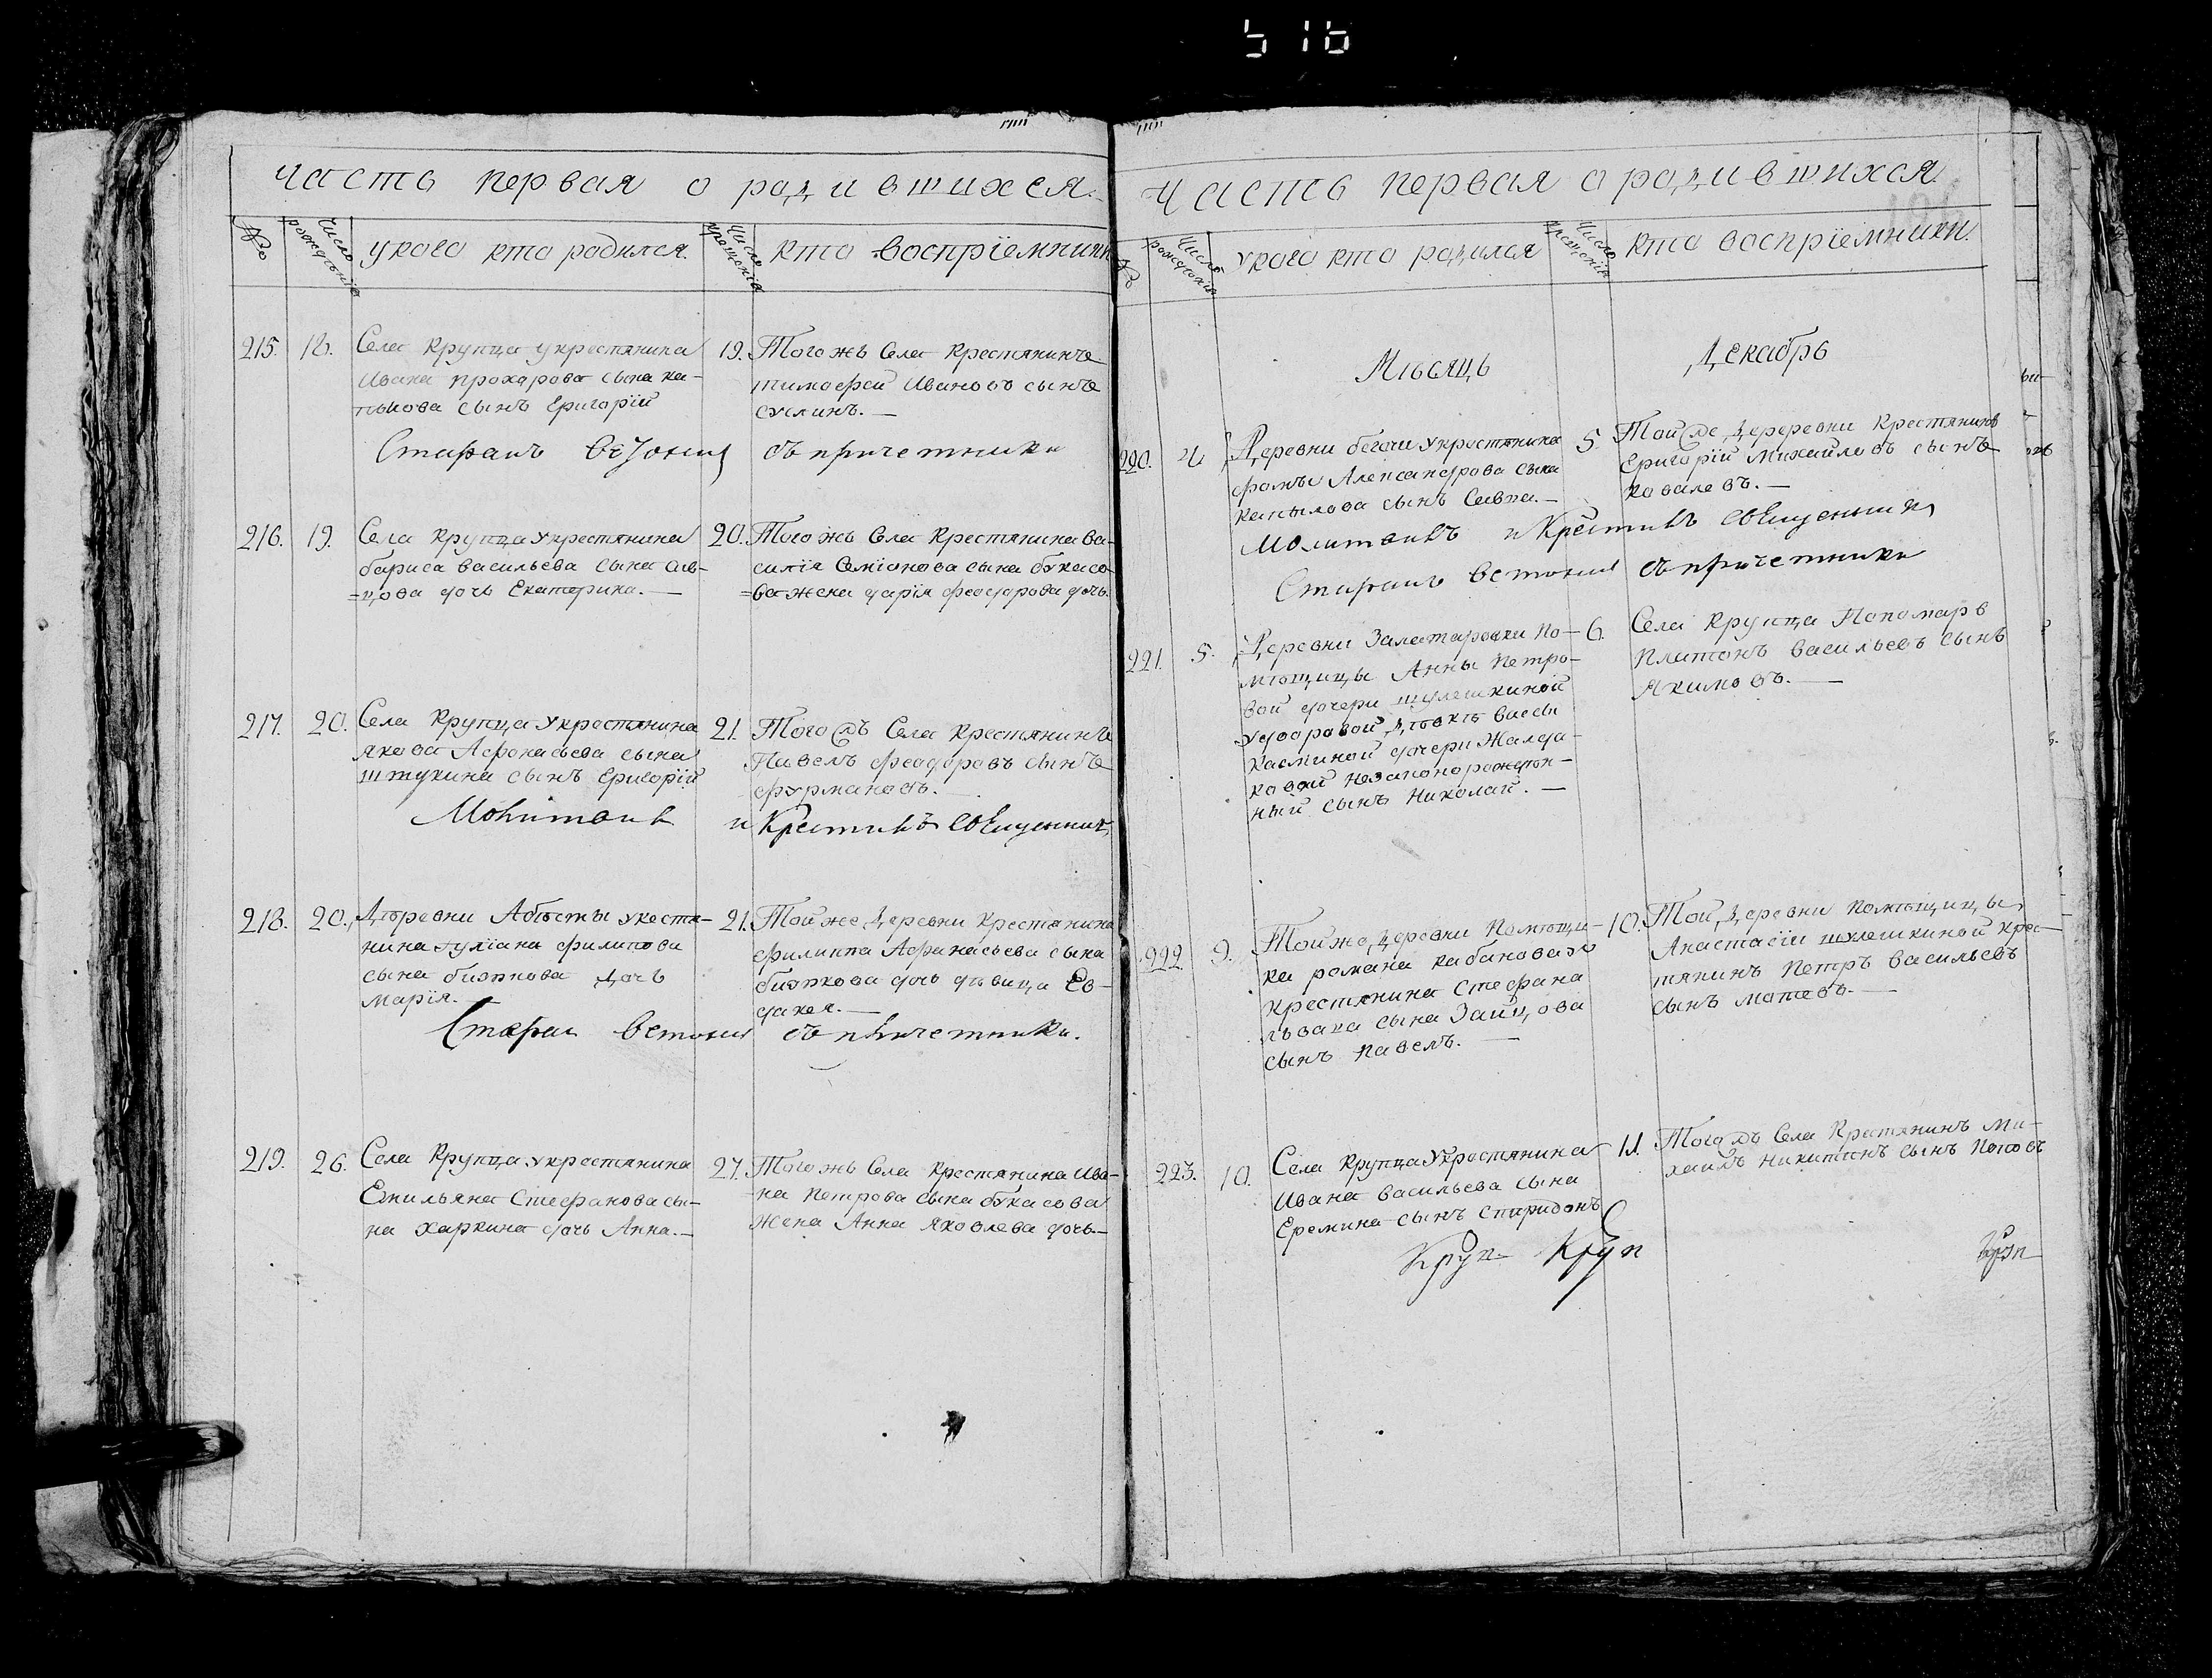 516
Часть первая о радившихся
№
Число рождения
у кого кто родился.
Число крещения
кто воспрїемники
215. 18. Села Крупца укрестянина
Ивана прохарова сына ка-
тькова сынъ Григорїй
19. Тогожъ Села Крестянинъ
тимофей Ивановъ сынъ
суслинъ.—
Стефанъ съпричетники
216. 19. Села Крупца укрестянина
бариса васильева сына сав-
=цова дочь Екатерина.—
20. Тогожъ Села Крестянина ва-
силїя Семїонова сына букасо-
=ва жена дарїя феодорова дочь.
217. 20. Села Крупца укрестянина
якова Афонасьева сына
штукина сынъ Григорїй
21. Тогожъ Села Крестянинъ
Павелъ феодоровъ сынъ
фурмановъ.—
Молитвилъ и Крестилъ священникъ
218. 20. Дѣревни Абѣсты укестя-
нина гулїана филипова
сына дочь
Марїя.—
21. Тойже деревни Крестянина
филиппа Афанасьева сына
дочь дѣвица Ев-
дакея.—
Стефан съпричетники.
219. 26. Села Крупца укрестянина
Емильяна Стефанова сы-
на харкина дочь Анна.—
27. Тогожъ Села Крестянина Ива-
-на Петрова сына букасова
Жена Анна яковлева дочь.—
Часть первая о радившихся.
№
Число рождения
укого кто радился
Число крещения
кто воспрїемники.
Мѣсяцъ Декабрь
220. 4. Деревни бегочи укрестянина
фомы Александрова сына
капылова сынъ Савва.—
5. Той же дереревни Крестянинъ
Григорїй Михайловъ сынъ
ковалевъ.—
Молитвилъ и Крестилъ священникъ
Стефанъ съпричетники
221. 5. Деревни Залатаровки По-
мѣщицы Анны Петро-
вой дочери шулешкиной
удворовой дѣвкѣ васы
касминой дочери Жалда-
ковой незаконорожден-
ный сынъ Николай.—
6. Села Крупца Пономарь
Платонъ васильевъ сынъ
Якимовъ.—
222. 9. Тойже деревни Помѣщи-
ка романа кабанова у
крестянина Стефана
львова сына Зайцова
сынъ павелъ.—
10. Той деревни помѣщицы
Анастасїи шулешкиной крес-
тянинъ Петръ васильевъ
сынъ матевъ.—
223. 10. Села Крупца Укрестянина
Ивана васильева сына
Еремина сынъ спиридонъ
11. Тогожъ Села Крестянинъ Ми-
хаилъ никитинъ сынъ поповъ
Круп Круп Круп